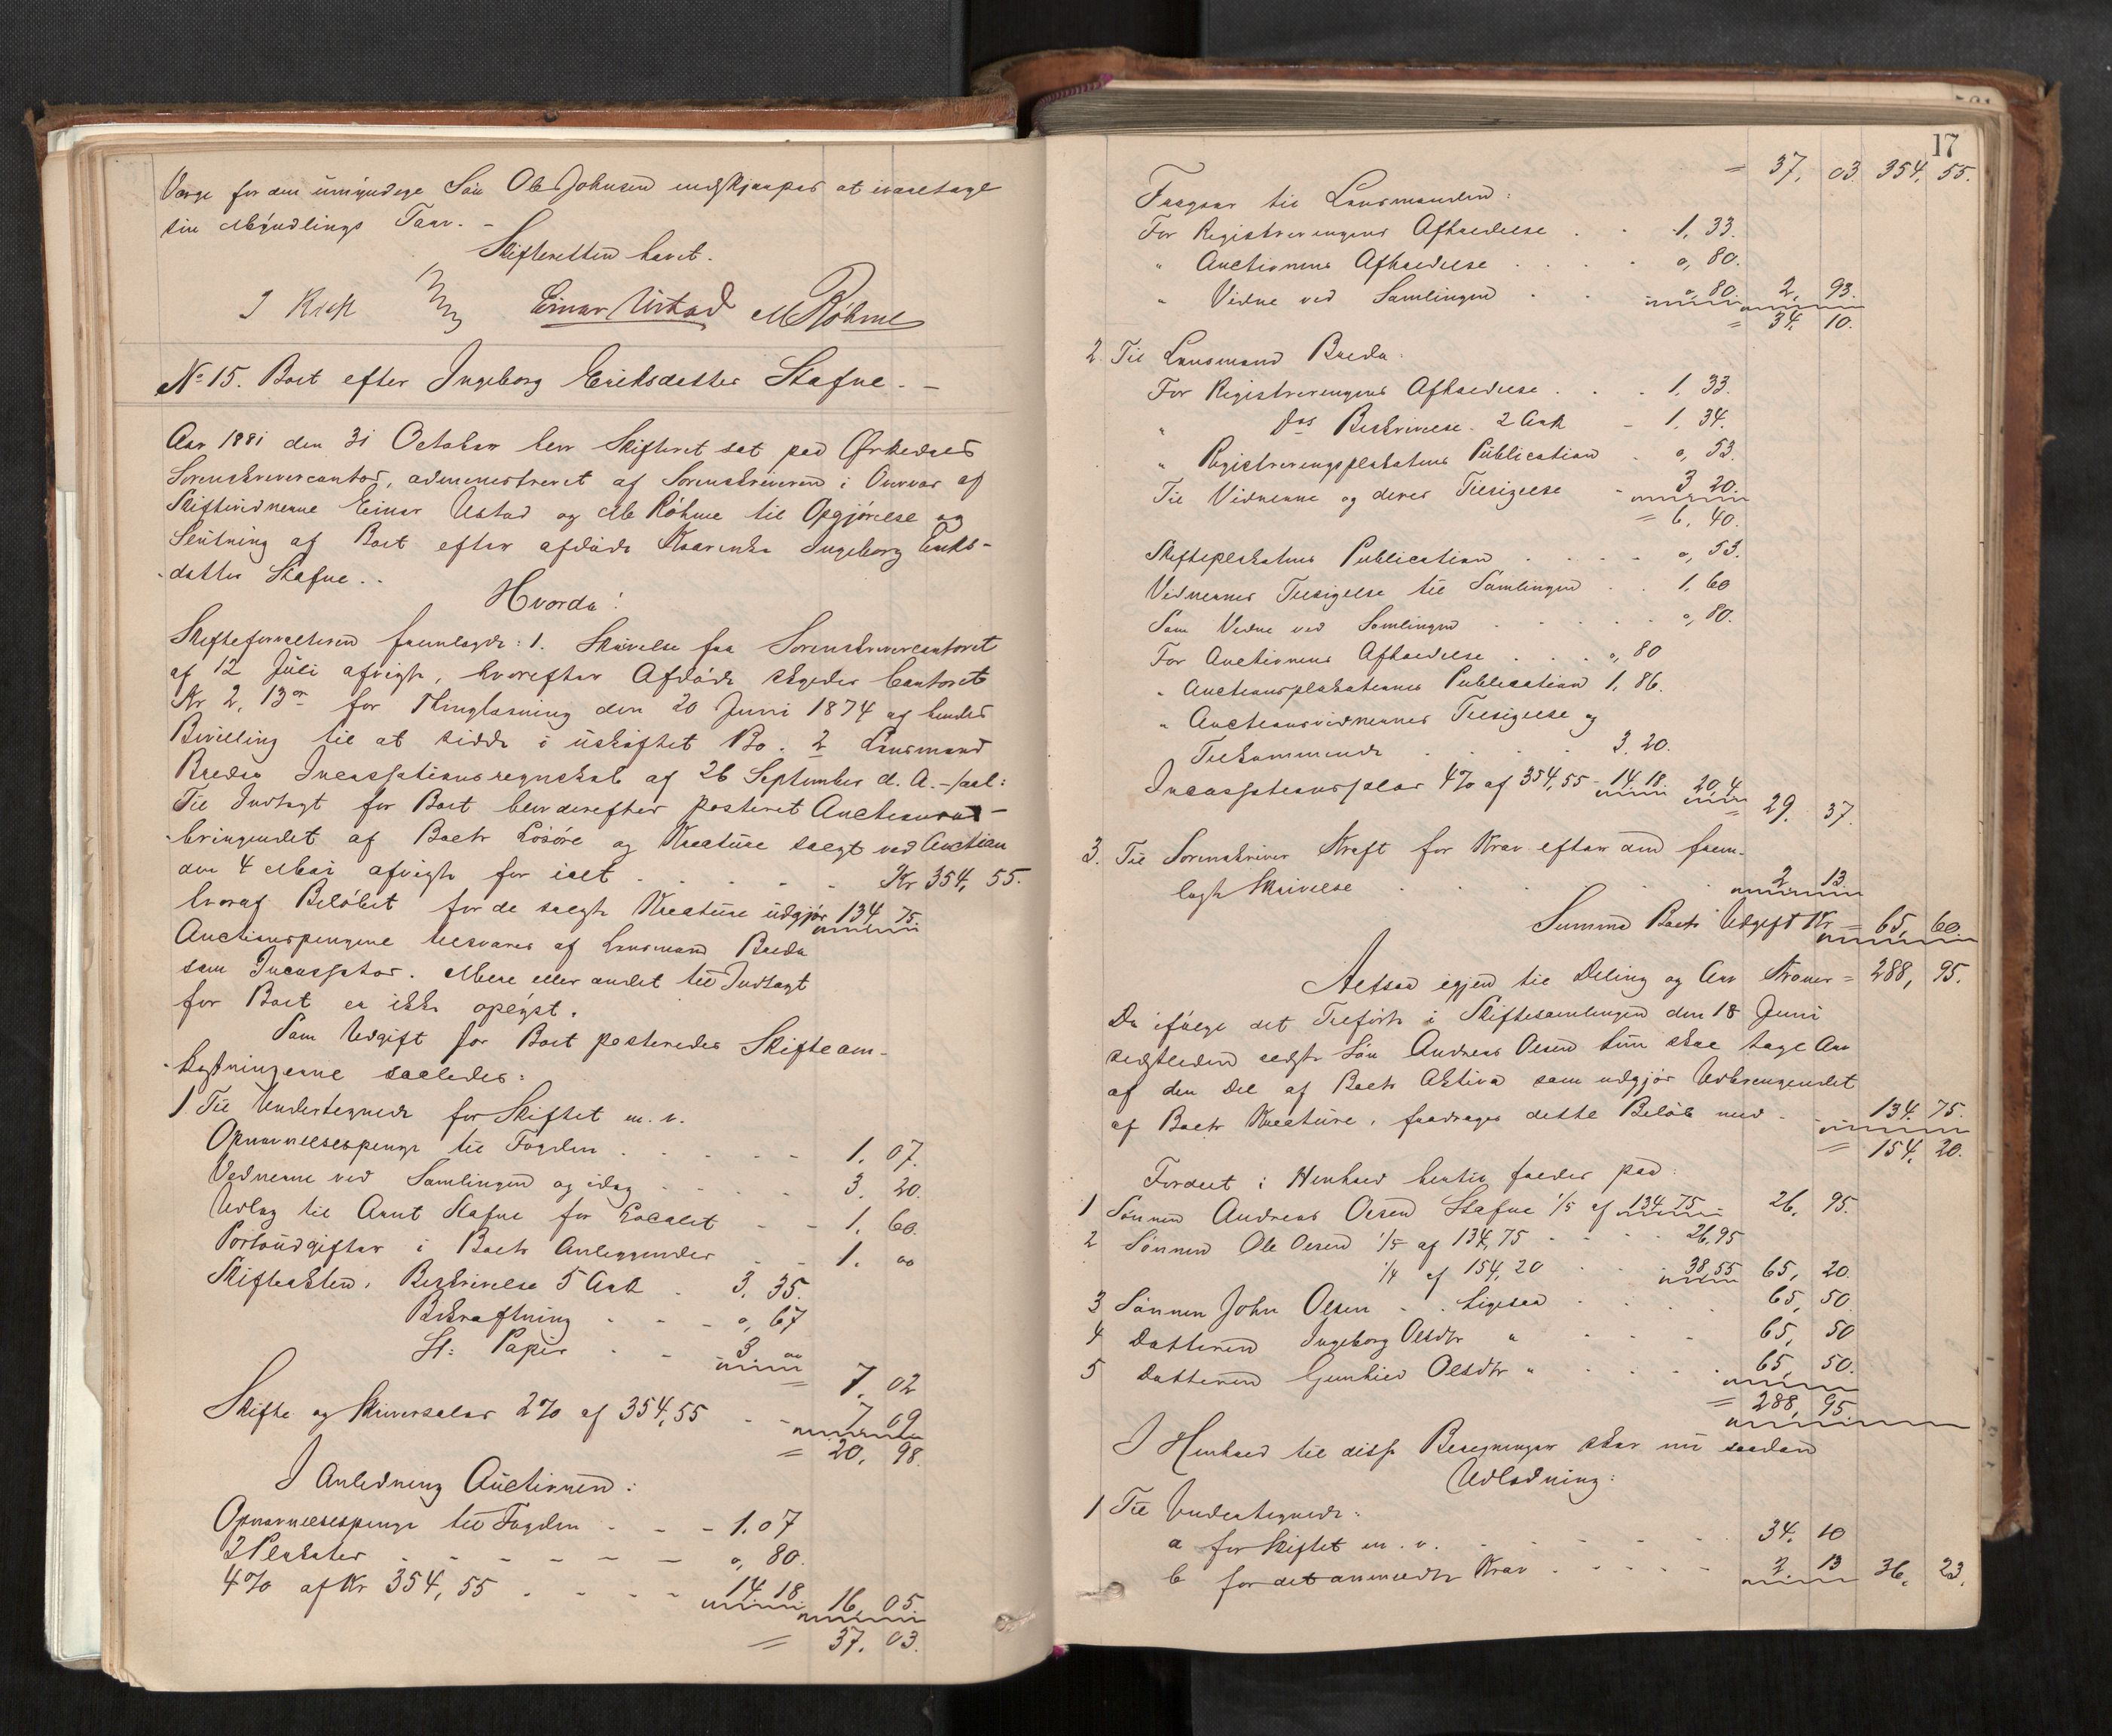 Værge for den umyndige Søn Ole Johnsen indskjærpes at ivaretage
sin Myndlings Tarv. –
Skifteretten hævet.
J Kraft Einar Ustad M Röhme
No 15. Boet efter Ingeborg Eriksdatter Stafne. –
Aar 1881 den 31 October blev Skifteret sat paa Ørkedals
Sorenskrivercontor, administreret af Sorenskriveren i Overvær af
Skiftevidnerne Einar Ustad og M Röhme til Opgjørelse og
Slutning af Boet efter afdøde Kaarenke Ingeborg Eriks-
-datter Stafne. .
Hvorda!
Skifteforvalteren fremlagde: 1. Skrivelse fra Sorenskrivercontoret
af 12 Juli afvigte, hvorefter Afdøde skyder Contoret
Kr 2, 13 ør for Thinglæsning den 20 Juni 1874 af hendes
Bevilling til at sidde i uskiftet Bo. 2 Lensmand
Bredes Incassationsregnskab af 26 September d. A. – saal:
Til Indtægt for Boet blev derefter posteret Auctionsud-
-bringendet af Boets Løsøre og Kreature solgt ved Auction
den 4 Mai afvigte for ialt . . . . . Kr 354, 55.
hvoraf Beløbet for de solgte Kreature udgjør 134 75.
Auctionspengene tilsvares af Lensmand Brede
som Incassator. Mere eller andet til Indtægt
for Boet er ikke oplyst.
Som Udgift for Boet posteredes Skifteom-
-kostningerne saaledes:
1 Til Undertegnede for Skiftet m. v.
Opnævnelsespenge til Fogden . . . . 1. 07.
Vidnerne ved Samlingen og idag . . . 3. 20.
Udlæg til Arnt Stafne for Localet – – 1. 60.
Portoudgifter i Boets Anliggender – – 1. 00
Skifteakten, Beskrivelse 5 Ark . 3. 35.
Bekræftning . . . 0, 67
St: Papir . . 3 00
= 7. 02
Skifte og Skriversalær 2% af 354,55 . . 7 09
= 20, 98.
I Anledning Auctionen:
Opnævnelsespenge til Fogden . . . 1.07
2 Plakater – – – – – – 0, 80.
4% af Kr 354, 55 . . . . 14 18 16 05.
= 37. 03.
17
= 37, 03. 354, 55.
Fragaar til Lensmanden:
For Registreringens Afholdelse . . 1, 33.
" Auctionens Afholdelse . . . . 0, 80.
" Vidne ved Samlingen . . 0, 80. 2, 93.
= 34. 10.
2. Til Lensmand Brede:
For Registreringens Afholdelse . . . 1, 33.
" Dos Beskrivelse. 2 Ark – 1, 34.
" Registreringsplakatens Publication . 0, 53.
Til Vidnerne og deres Tilsigelse – 3 20.
= 6, 40.
Skifteplakatens Publication . . . . 0, 53.
Vidnernes Tilsigelse til Samlingen . . 1, 60
Som Vidne ved Samlingen . . . . . 0, 80.
For Auctionens Afholdelse . . . 0, 80
" Auctionsplakaternes Publication 1, 86.
" Auctionsvidnernes Tilsigelse og
Tilkommende . . . . . 3. 20.
Incassationssalær 4% af 354,55 – 14. 18. 20, 4
= 29. 37.
3. Til Sorenskriver Kraft for Krav efter den frem-
lagte Skrivelse . . . . . . . 2 13.
Summa Boets Udgift Kr = 65, 60.
Altsaa igjen til Deling og Arv Kroner = 288, 95.
Da ifølge det Tilførte i Skiftesamlingen den 18 Juni
sidstleden ældste Søn Andreas Olsen kun skal tage Arv
af den Del af Boets Aktiva som udgjør Udbringendet
af Boets Kreature, fradrages dette Beløb med – 134. 75.
= 154. 20.
Fordelt i Henhold hertil falder paa:
1 Sønnen Andreas Olsen Stafne 1/5 af 134 75 26. 95.
2 Sønnen Ole Olsen 1/5 af 134,75 . . . . 26,95
1/4 af 154,20 . . 38,55 65, 20.
3 Sønnen John Olsen . . . ligesaa . . . . 65, 50.
4 Datteren Ingeborg Olsdtr " . . . . 65, 50
5 Datteren Gunhild Olsdtr " . . . . . 65, 50.
= 288, 95.
I Henhold til disse Beregninger sker nu saadan
Udlodning:
1 Til Undertegnede:
a for Skiftet m. v. . . . . . . 34, 10
b for det anmeldte Krav . . . . . 2. 13 36, 23.